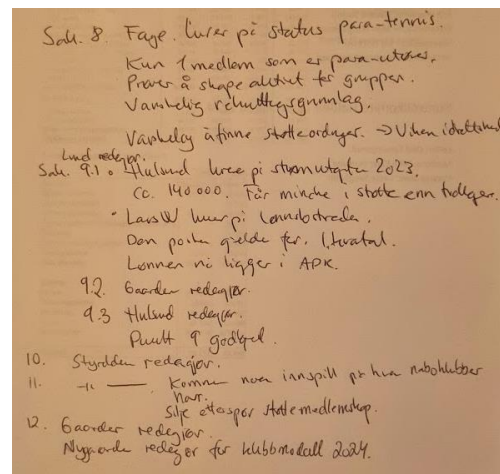 Sak. 8 Faye. lurer på status para-tennis.
Kun 1 medlem som er para-utøver.
Prøver å skape aktivitet for gruppen.
Vanskelig rekruttegsgrunnlag.
Vanskelig å finne støtteordninger. → Viken idrettskrets
Lund redegjør.
Sak. 9.1 Hulsund lurer på strømutgifter 2023.
Ca. 140 000. Får mindre i støtte enn tidligere.
lurer på lønnskostnader.
Den posten gjelde for
Lønnen nå ligger i APK.
9.2. Gaarder redegjør.
9.3 Hulsund redegjør.
Punkt 9 godkjent.
10. redegjør.
11. -"- Komme noen innspill på hva naboklubber
har.
Silje etterspør støttemedlemskap.
12. Gaarder redegjør.
Nygaarde redegjør for klubbmodell 2024.